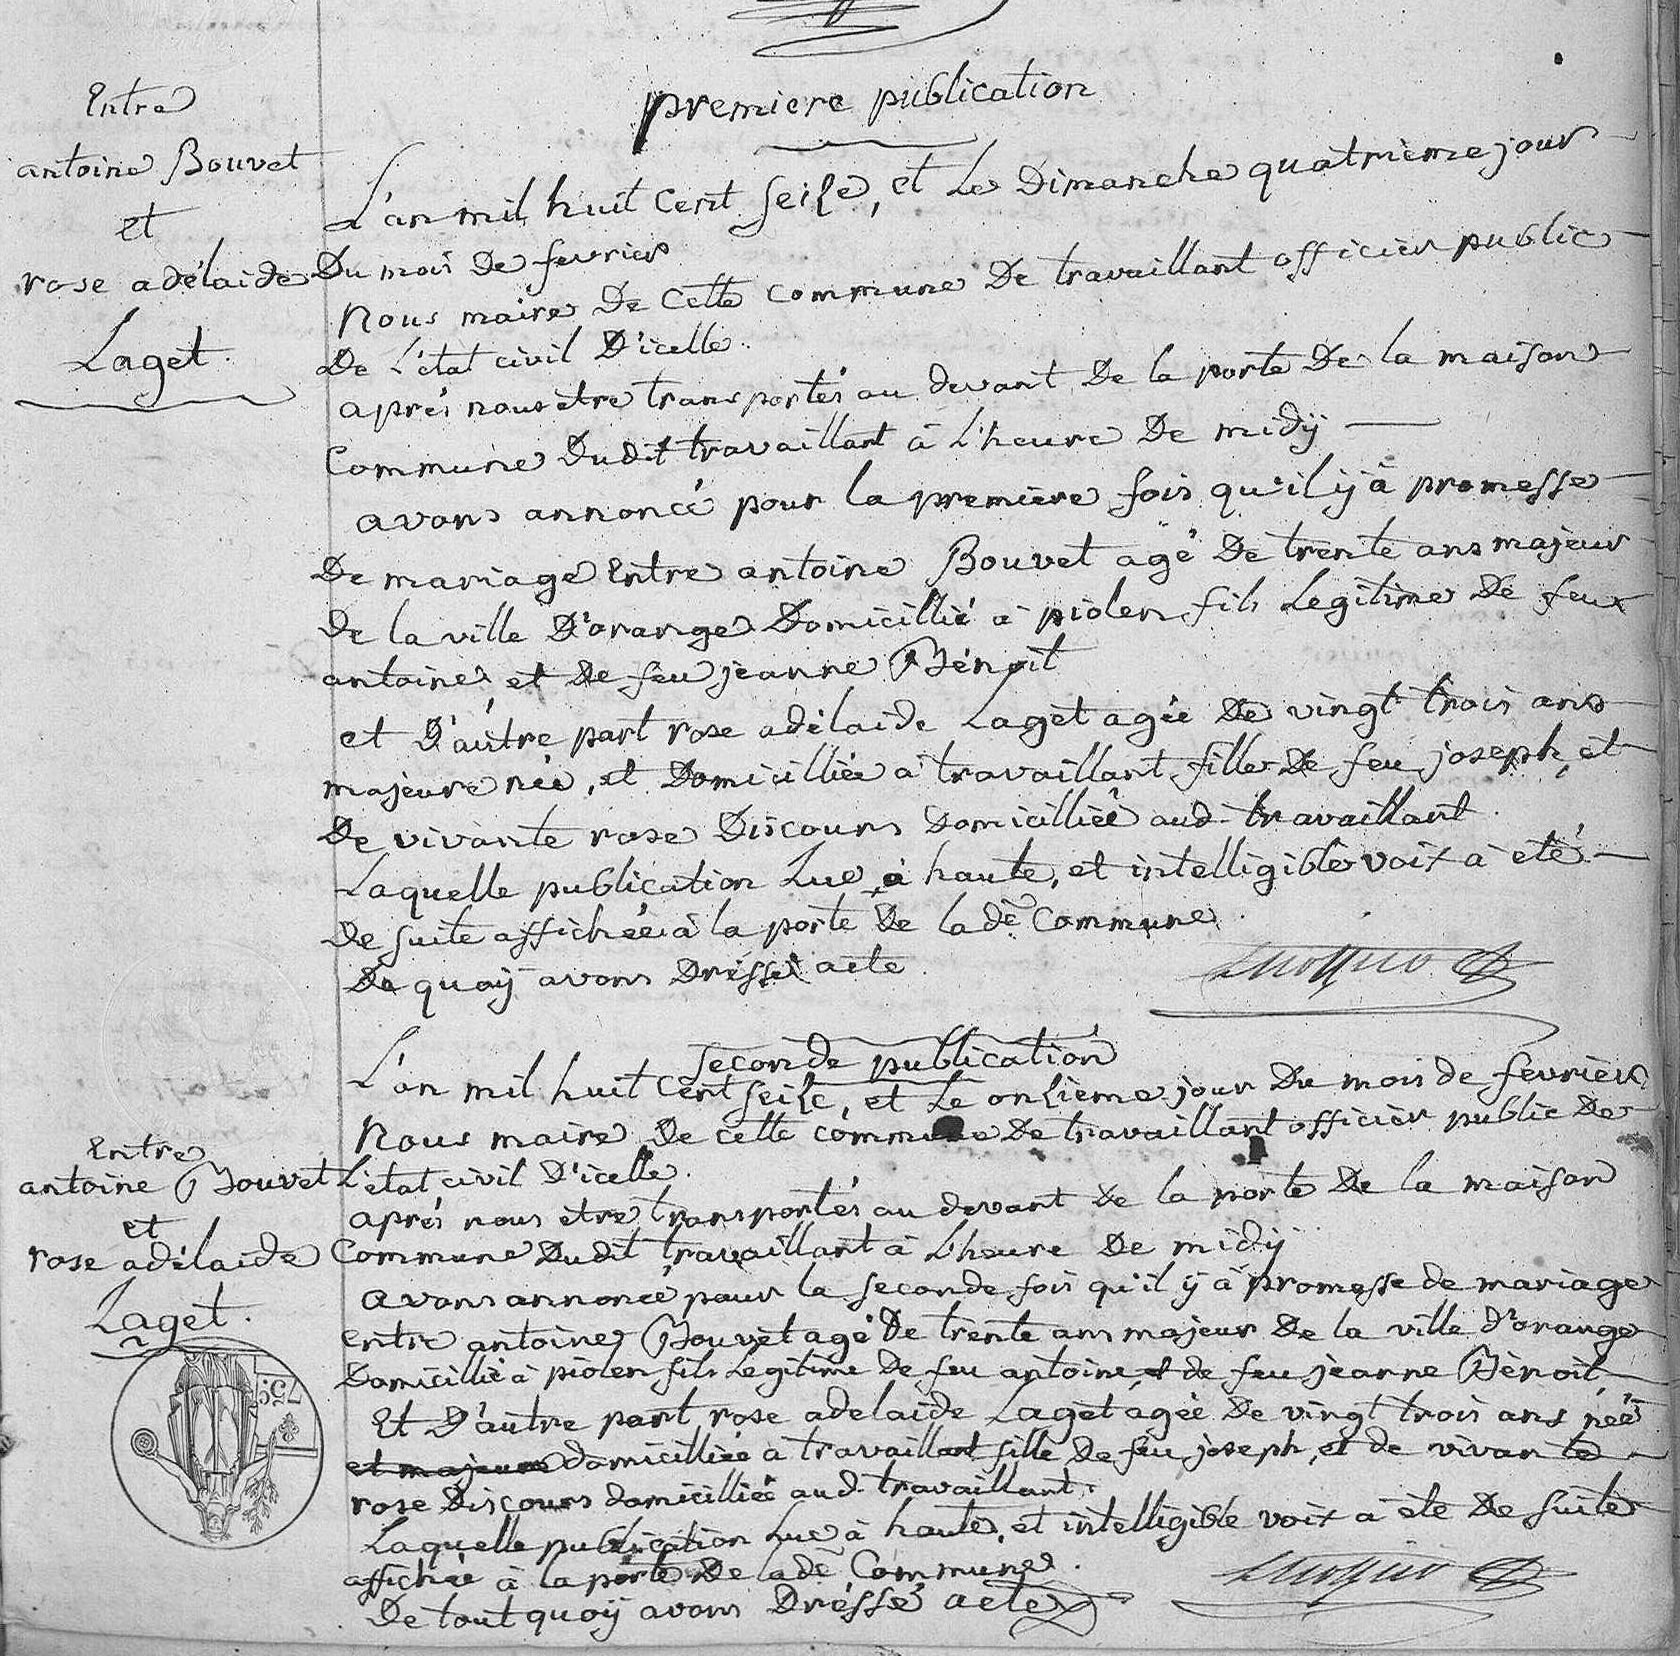 premiere publication
Entre
antoine Bouvet
et
rose adélaide
Laget.
L'an mil huit Cent Seize, et Le Dimanche quatrième jour
Du mois De fevrier
Nous maire De Cette Commune De travaillant officier public
De L'état civil D'icelle.
aprés nous être transportés au devant De la porte De la maison
Commune Dudit travaillant à L'heure De midÿ
avons annoncé pour la première fois qu'il ÿ à promesse
De mariage Entre antoine Bouvet agé De trente ans majeur
De la ville D'orange Domicillié à piolen fils Legitime De feu
antoine et De feu jeanne Bénoit
et D'autre part rose adélaide Laget agée De vingt trois ans
majeure née, et Domicilliée à travaillant fille De feu joseph, et
De vivante rose Discours Domicilliée aud. travaillant.
Laquelle publication Lue à haute, et intelligible voix à eté
De suite affichée à la porte De lade Commune.
De quoÿ avons Dréssé acte.
Seconde publication
Entre
antoine Bouvet
et
rose adélaide
Laget.
L'an mil huit Cent Seize, et Le onzième jour Du mois de fevrier
Nous maire De cette commune De travaillant officier public De
L'état civil D'icelle.
aprés nous être transportés au devant De la porte De la maison
Commune Dudit travaillant à L'heure De midÿ
avons annoncé pour la seconde fois qu'il ÿ à promesse de mariage
entre antoine Bouvet agé De trente ans majeur De la ville d'orange
Domicillié à piolen fils Legitime De feu antoine, et de feu jeanne Bènoit
Et D'autre part rose adelaide Laget agée De vingt trois ans née
et majeure domicilliée à travaillant fille De feu joseph, et de vivante
rose Discours domicilliée aud. travaillant.
Laquelle publication Lue à haute, et intelligible voix à été De suite
affichée à la porte De lade Commune.
De tout quoÿ avons Dréssé acte
75c.